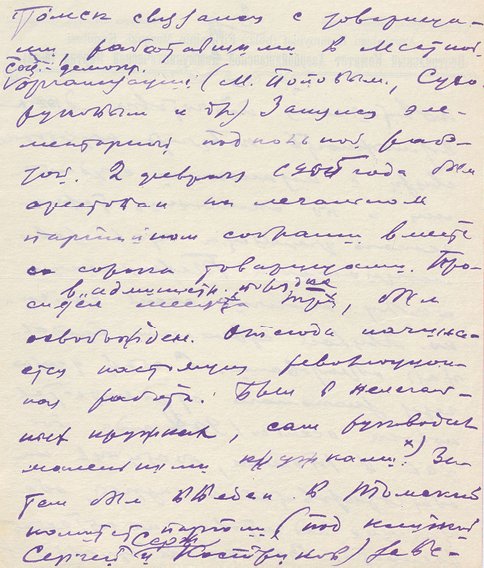 Томск связался с товарища-
ми, работавшими в местной
соц.-демокр.
организации (М. Поповым, Сухо-
руковым и др.) Занялся эле-
ментарной подпольной рабо-
той. 2 февраля 1905 года был
арестован на легальном
партийном собрании вместе
с сорока товарищами. Про-
в "админист. порядке
сидел месяца три, был
освобожден. Отсюда начина-
ется настоящая революцион-
ная работа. Был в нелегаль-
ных кружках, сам руководил
маленькими кружками х) За-
тем был введен в Томский
комитет партии (под кличкой
Серж
Сергей и Костриков) заве-